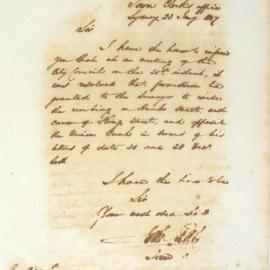 Town Clerk's office
Sydney 23 Aug 1847
Sir
I have the honor to inform
you that at a meeting of the
City Council on the instant, it
was resolved that permission be
granted to the Surveyor to
the curbing in Street and
corner of King street, and opposite
the Union Bank in terms of his
letters of date 20 and 28
last
I have the honor to be
Sir
Your most obed. Sert